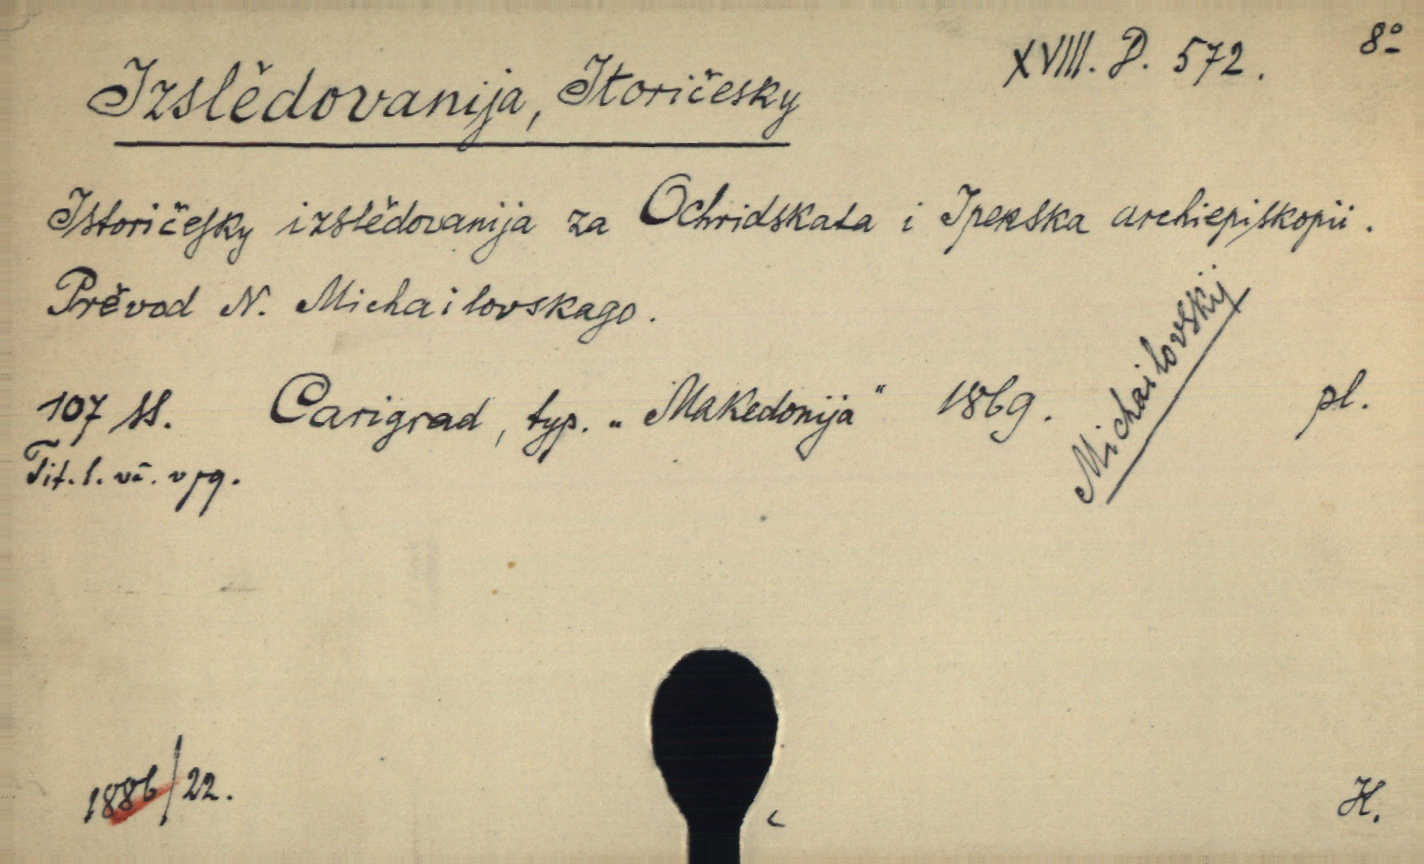 XVIII. D. 572. 8º
Izslědovanija, Itoričesky
Istoričesky izslědovanija za Ochridskata i Ipekska archiepiskopii.
Prěvod N. Michailovskago.
Michailovskij
107 ss. Carigrad, typ. „Makedonija" 1869. pl.
Tit. l. vč. v pg.
1886/22. H.